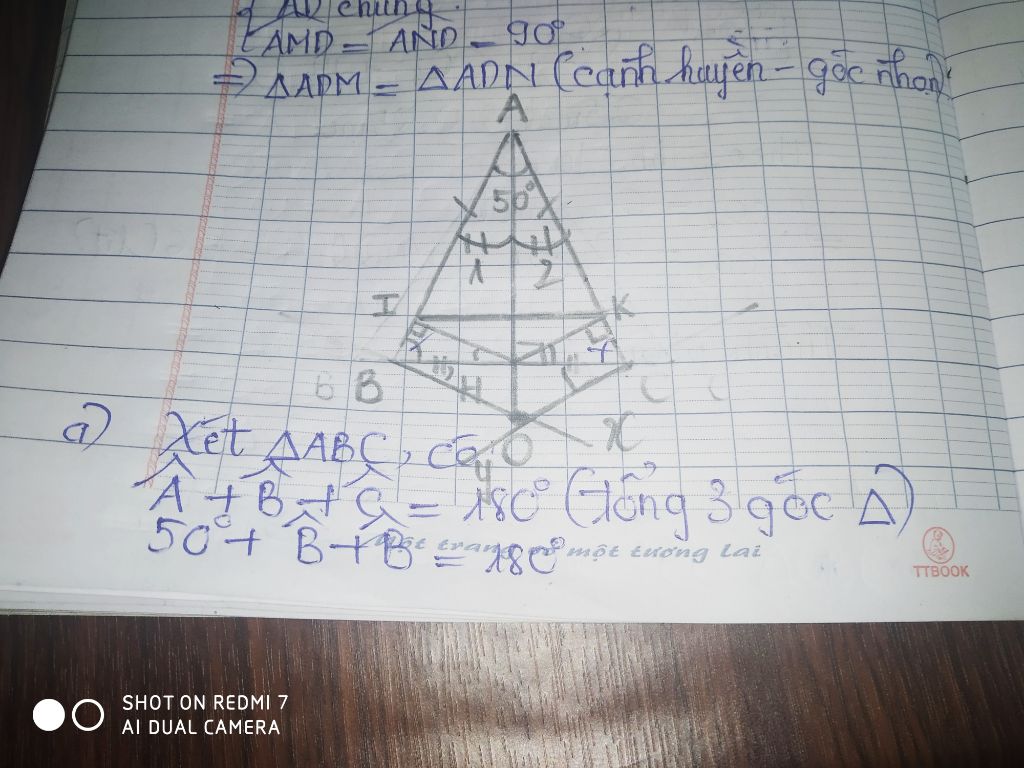 AD chung.
AMD = AND = 90°
=> ΔADM = ΔADN (cạnh huyền - góc nhọn)
A
50°
1 2
I K
B H C
O x
y
a) Xét ΔABC, có
Â + B̂ + Ĉ = 180° (tổng 3 góc Δ)
50° + B̂ + B̂ = 180°
một tương lai
TTBOOK
SHOT ON REDMI 7
AI DUAL CAMERA